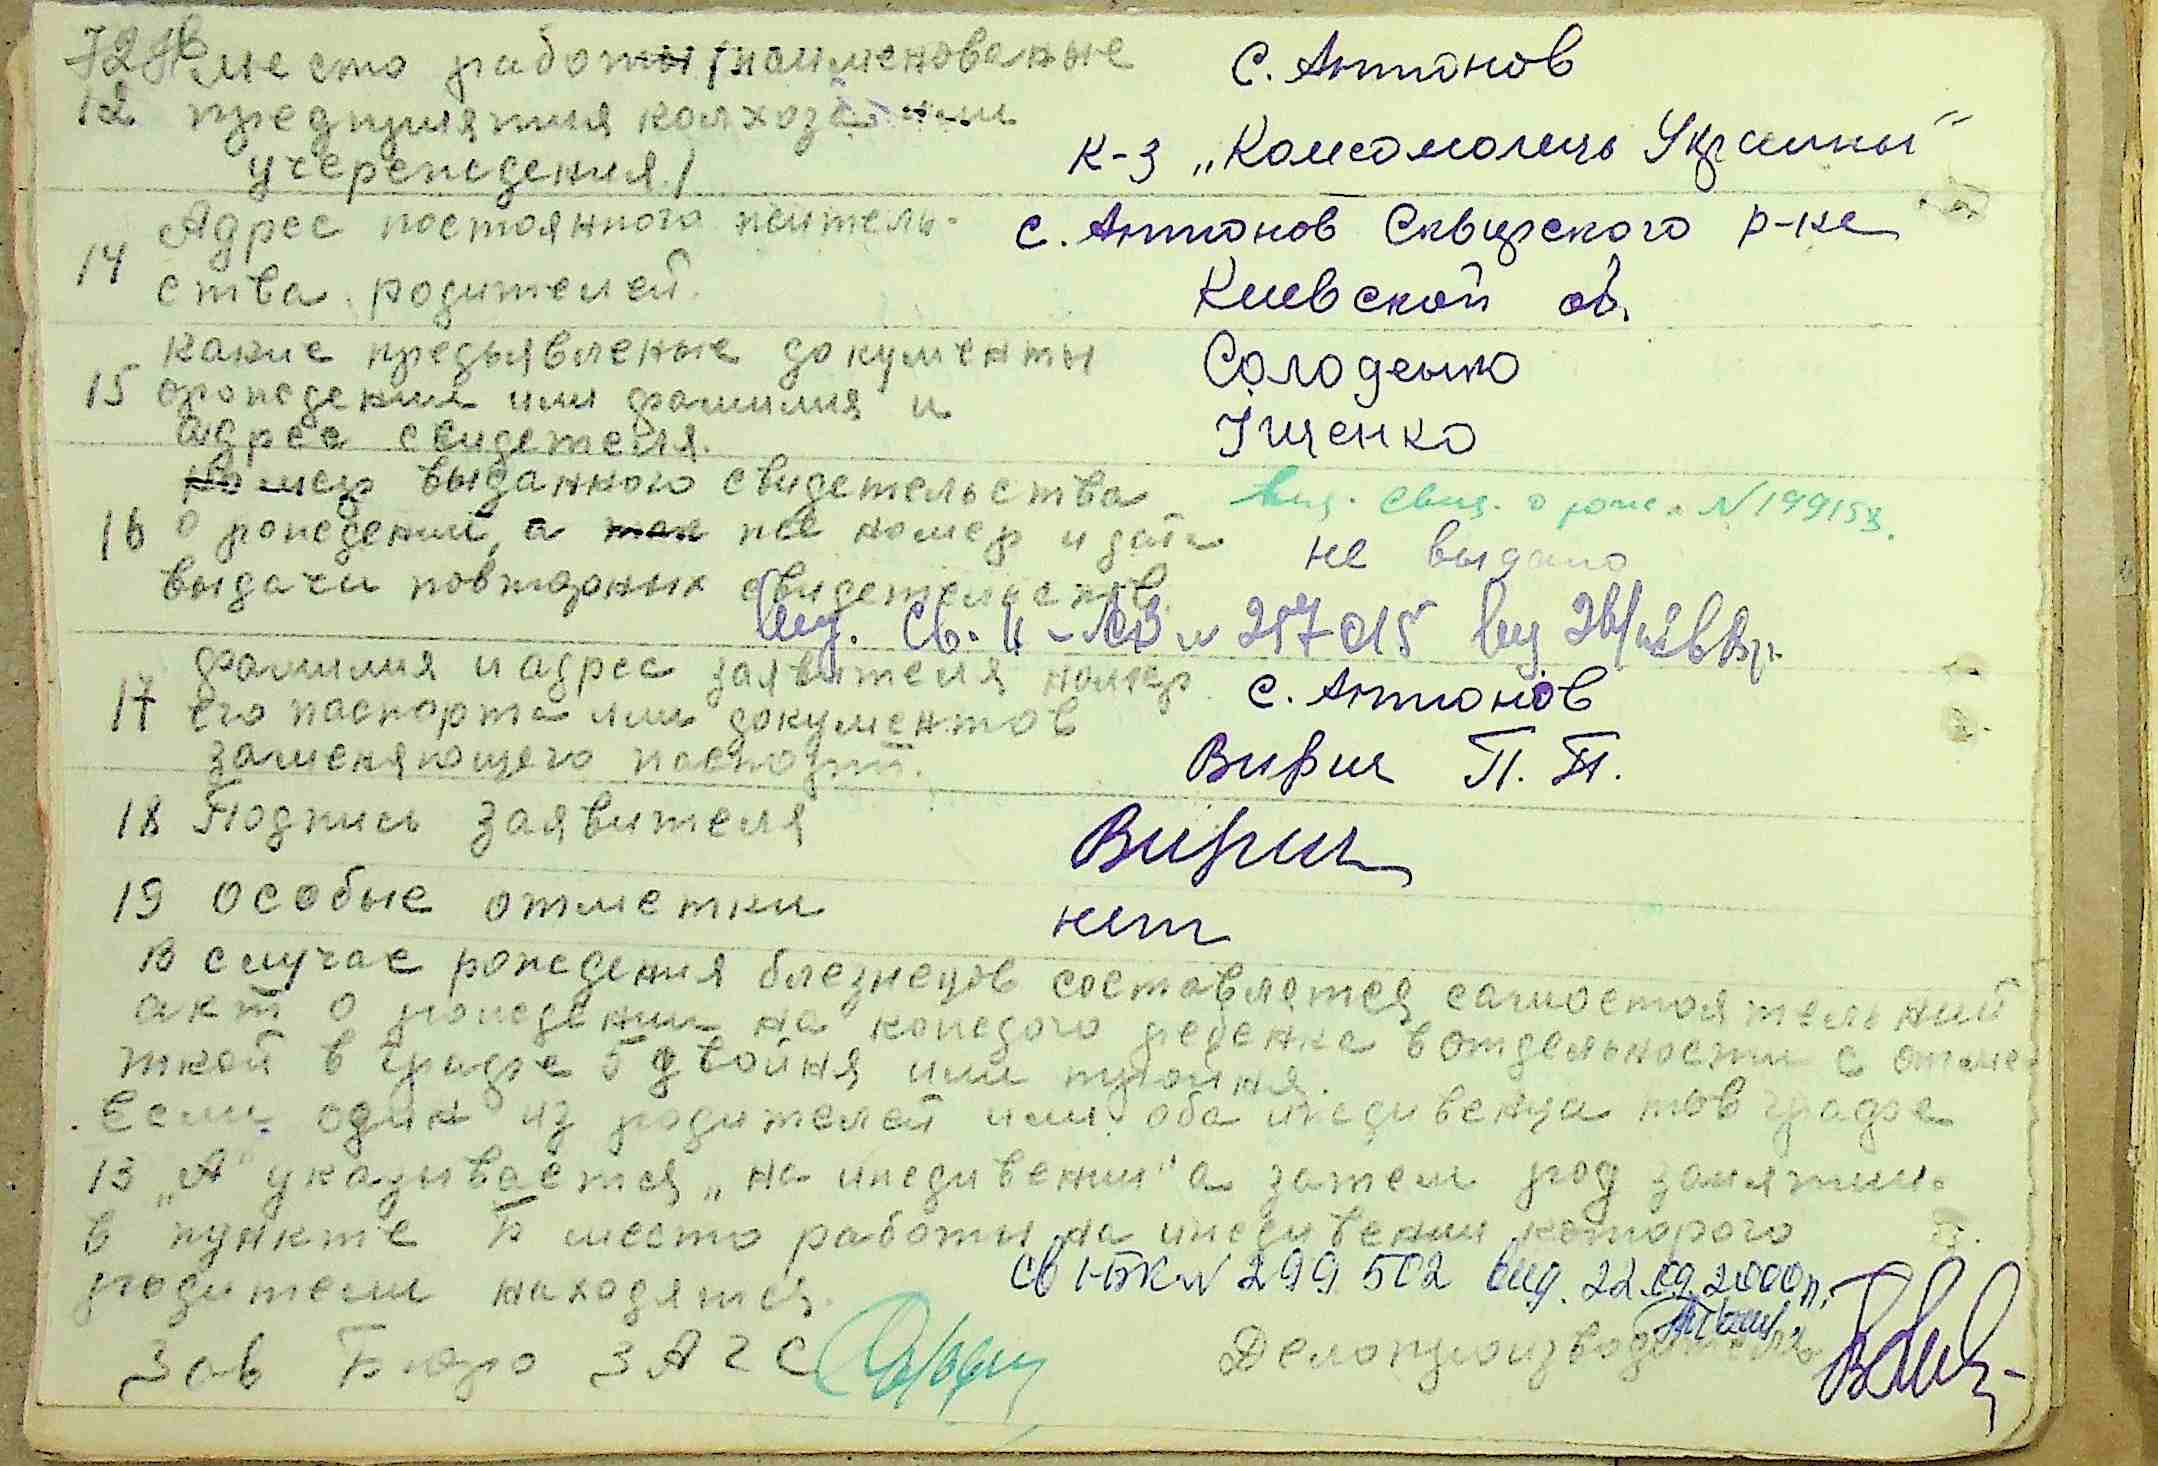 место работы /наименование
с. Антонов
12 предприятия колхоза или
учереждения/
к-з „Комсомолець Украины"
14 Адрес постоянного житель-
ства родителей.
с. Антонов Сквирского р-на
Киевской об.
15 какие предьявленые документы
орождении или фамилия и
адрес свидетеля.
Солоденко
Іщенко
16 номер выданного свидетельства
о рождении, а так же номер и дата
выдачи повторных свидетельств.
Выд. свид. о рожд. N 199153.
не выдано
Выд. св. II - N 257015
17 фамилия и адрес заявителя номер
его паспорта или документов
заменяющего паспорт.
с. Антонов
Вирич П. П.
18 Подпись заявителя
Вирич
19 особые отметки
нет
В случае рождения близнецов составляется самостоятельний
акт о рождении на каждого ребенка в отдельности с отме-
ткой в графе 5 двойня или тройня.
Если один из родителей или оба иждивенца то в графе
13 „А" указывается „на иждивении" а затем род занятии.
в пункте Б место работы на иждивении которого
родители находятся.
св І-БК N 299502 вид. 22.09.2000р.
Зав Бюро ЗАГС
Делопроизводитель